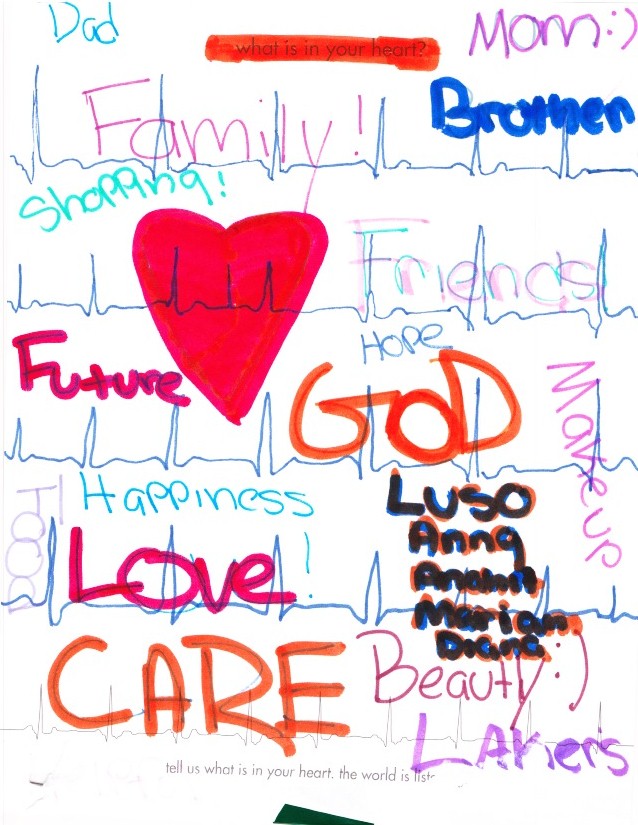 Dad
what is in your heart?
Mom:)
Family!
Brother
Shopping!
Friends
Hope
Future
GOD
Makeup
Happiness
Luso
Anna
Love!
Marian
Diana
CARE
Beauty:)
LAKers
tell us what is in your heart. the world is